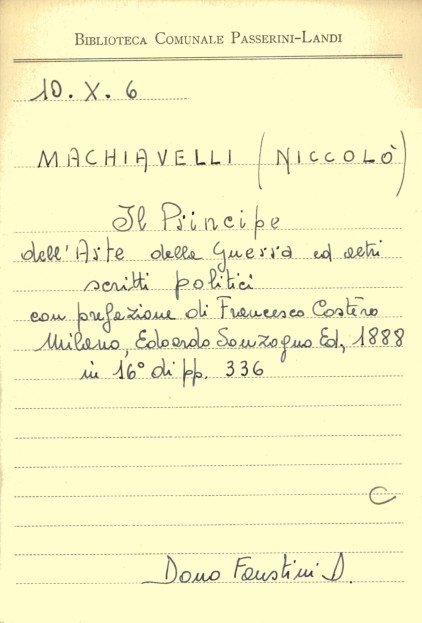 BIBLIOTECA COMUNALE PASSERINI-LANDI
10. X. 6
MACHIAVELLI (NICCOLÒ)
Il Principe
dell'Arte della Guerra ed altri
scritti politici
con prefazione di Francesco Costèro
Milano, Edoardo Sonzogno Ed, 1888
in 16° di pp. 336
C
Dono Faustini D.